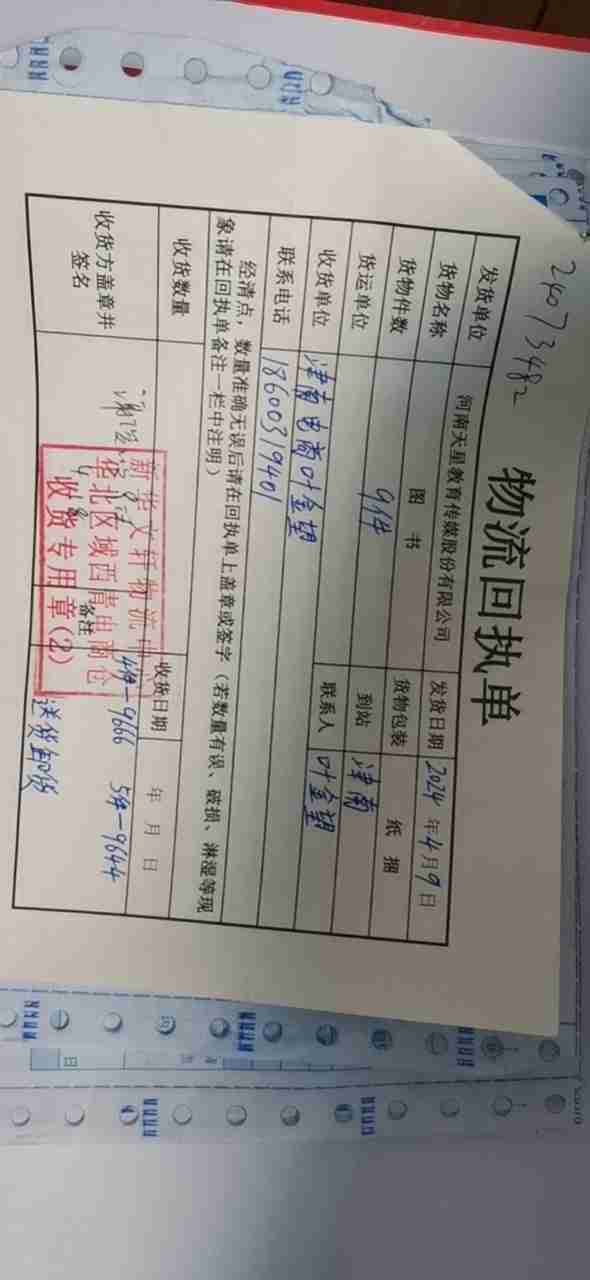 24073482
物流回执单
发货单位 河南天星教育传媒股份有限公司 发货日期 2024年4月9日
货物名称 图书 货物包装 纸捆
货物件数 9件
货运单位 到站 津南
收货单位 津南电商叶金望 联系人 叶金望
联系电话 18600319401
经清点，数量准确无误后请在回执单上盖章或签字（若数量有误、破损、淋湿等现
象请在回执单备注一栏中注明）
收货数量 收货日期 年 月 日
收货方盖章并
签名
备注
4件-9666 5件-9644
送货卸货
新华文轩物流中
华北区域西青电商仓
收货专用章(2)